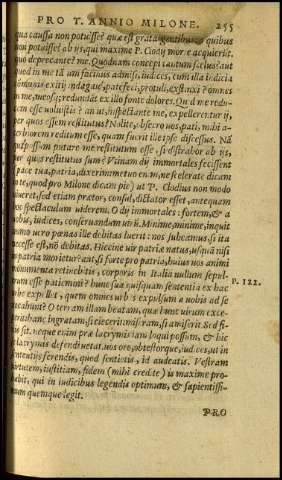 PRO T. ANNIO MILONE. 255
qua caussa non potuisse? quæ est grata gentibus? à quibus
non potuisse? ab ijs, qui maxime P. Clodij morte acquierūt.
quo deprecante? me. Quodnam concepi tantum scelus? aut
quod in me tantum facinus admisi, iudices, cum illa indicia
communis exitij indagaui, patefeci, protuli, extinxi? omnes
in me, meosq́; redundāt ex illo fonte dolores. Quid me redu-
cem esse uoluistis? an ut, inspectante me, expellerentur ij,
per quos essem restitutus? Nolite, obsecro uos, pati, mihi a-
cerbiorem reditum esse, quam fuerit ille ipse discessus. Nā
qui possum putare me restitutum esse, si distrahor ab ijs,
per quos restitutus sum? Vtinam dij immortales fecissent
pace tua, patria, dixerim: metuo enim, ne scelerate dicam
in te, quod pro Milone dicam pie) ut P. Clodius non modo
uiueret, sed etiam prætor, consul, dictator esset, antequam
hoc spectaculum uiderem. O dij immortales: fortem, & a
uobis, iudices, conseruandum uirū. Minime, minime, inquit
immo uero pœnas ille debitas luerit: nos subeamus, si ita
necesse est, nō debitas. Hiccine uir patriæ natus, usquā nisi
in patria morietur? aut, si forte pro patria, huius uos animi
monumenta retinebitis, corporis in Italia nullum sepul-
crum esse patiemini? hunc sua quisquam sententia ex hac
urbe expellet, quem omnes urbes expulsum a nobis ad se
uocabunt? O terram illam beatam, quæ hunc uirum exce-
perit: hanc ingratam, si eiecerit: miseram, si amiserit. Sed fi-
nis sit. neque enim præ lacrymis iam loqui possum, & hic
se lacrymis defendi uetat. uos oro, obtestorque, iudices, ut in
sententijs ferendis, quod sentietis, id audeatis. Vestram
uirtutem, iustitiam, fidem (mihi credite) is maxime pro-
babit, qui in iudicibus legendis optimum, & sapientissi-
mum quemque legit.
P. 122.
PRO